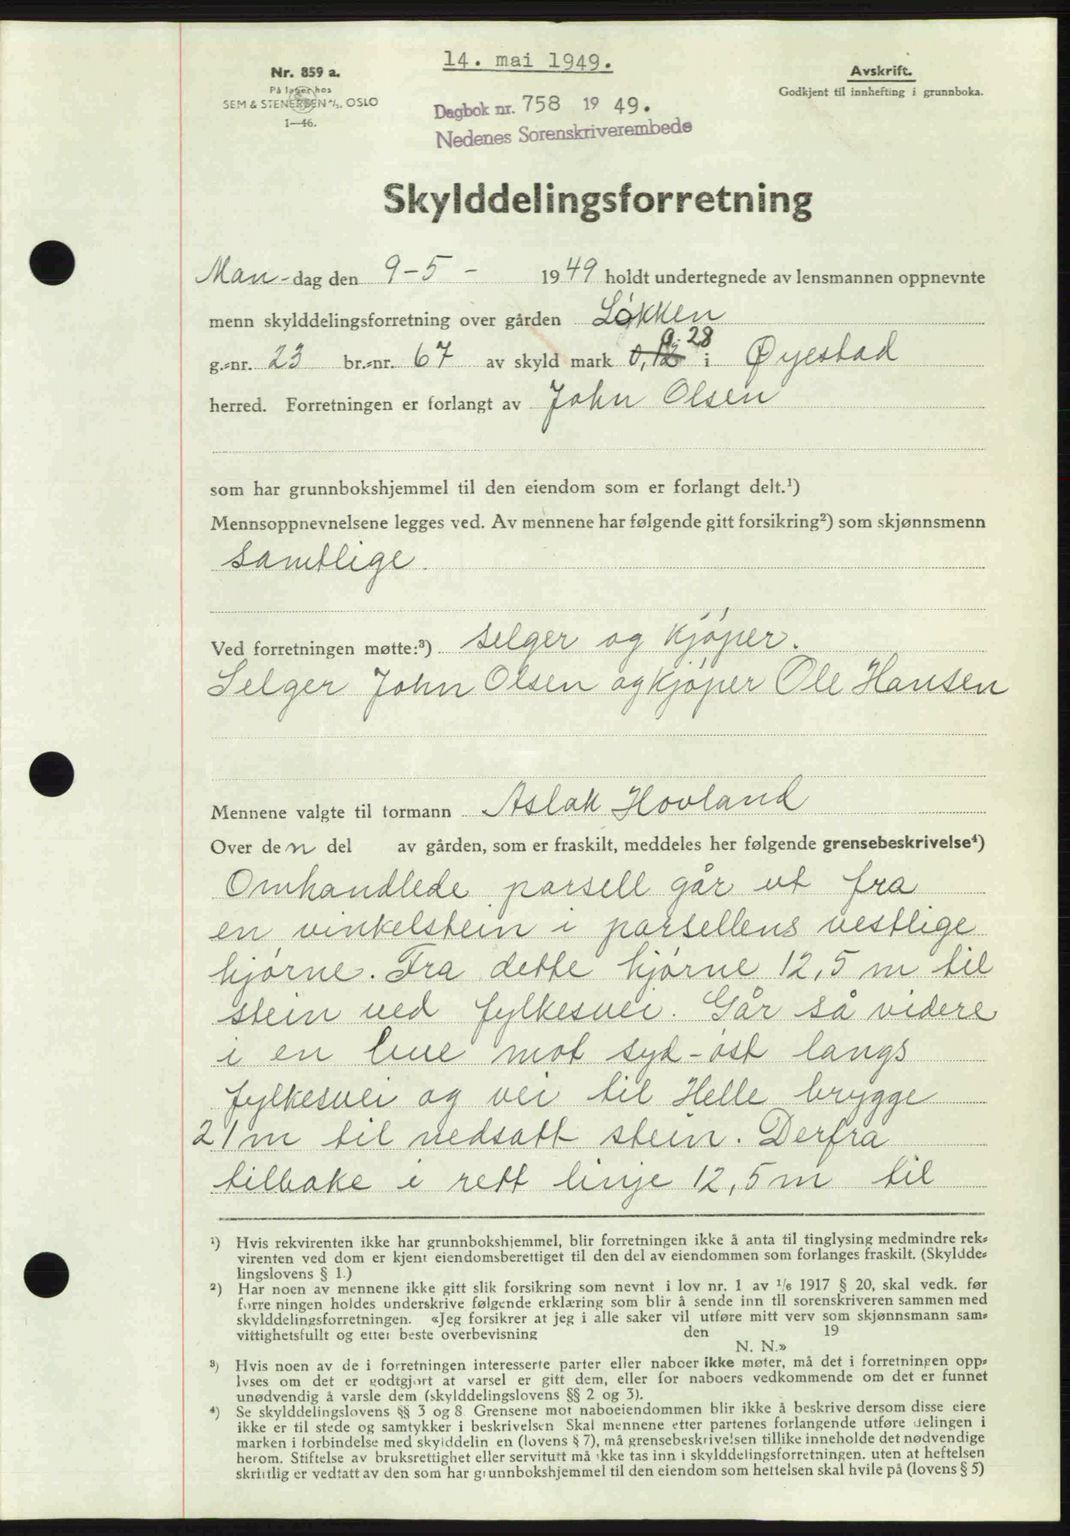 14. mai 1949.
Nr. 859 a.
På lager hos
SEM & STENERSEN A/S. OSLO
1—46.
Avskrift.
Godkjent til innhefting i grunnboka.
Dagbok nr. 758 19 49.
Nedenes Sorenskriverembede
Skylddelingsforretning
Man-dag den 9-5- 1949 holdt undertegnede av lensmannen oppnevnte
menn skylddelingsforretning over gården Løkken
g.-nr. 23 br.-nr. 67 av skyld mark 0,12 0.28 i Øyestad
herred. Forretningen er forlangt av John Olsen
som har grunnbokshjemmel til den eiendom som er forlangt delt.¹)
Mennsoppnevnelsene legges ved. Av mennene har følgende gitt forsikring²) som skjønnsmenn
samtlige.
Ved forretningen møtte:³) selger og kjøper.
Selger John Olsen og kjøper Ole Hansen
Mennene valgte til formann Aslak Hovland
Over den del av gården, som er fraskilt, meddeles her følgende grensebeskrivelse⁴)
Omhandlede parsell går ut fra
en vinkelstein i parsellens vestlige
hjørne. Fra dette hjørne 12,5 m til
stein ved fylkesvei. Går så videre
i en linie mot syd-øst langs
fylkesvei og vei til Helle brygge
21 m til nedsatt stein. Derfra
tilbake i rett linje 12,5 m til
¹) Hvis rekvirenten ikke har grunnbokshjemmel, blir forretningen ikke å anta til tinglysing medmindre rek-
virenten ved dom er kjent eiendomsberettiget til den del av eiendommen som forlanges fraskilt. (Skyldde-
lingslovens § 1.)
²) Har noen av mennene ikke gitt slik forsikring som nevnt i lov nr. 1 av 1/6 1917 § 20, skal vedk. før
forretningen holdes underskrive følgende erklæring som blir å sende inn til sorenskriveren sammen med
skylddelingsforretningen. «Jeg forsikrer at jeg i alle saker vil utføre mitt verv som skjønnsmann sam-
vittighetsfullt og etter beste overbevisning den 19
N. N.»
³) Hvis noen av de i forretningen interesserte parter eller naboer ikke møter, må det i forretningen opp-
lyses om det er godtgjort at varsel er gitt dem, eller for naboers vedkommende om det er funnet
unødvendig å varsle dem (skylddelingslovens §§ 2 og 3).
⁴) Se skylddelingslovens §§ 3 og 8. Grensene mot naboeiendommen blir ikke å beskrive dersom disse eiere
ikke er til stede og samtykker i beskrivelsen Skal mennene etter partenes forlangende utføre delingen i
marken i forbindelse med skylddelingen (lovens § 7), må grensebeskrivelsen tillike inneholde det nødvendige
herom. Stiftelse av bruksrettighet eller servitutt må ikke tas inn i skylddelingsforretningen. uten at heftelsen
skriftlig er vedtatt av den som har grunnbokshjemmel til den eiendom som heftelsen skal hvile på (lovens § 5)